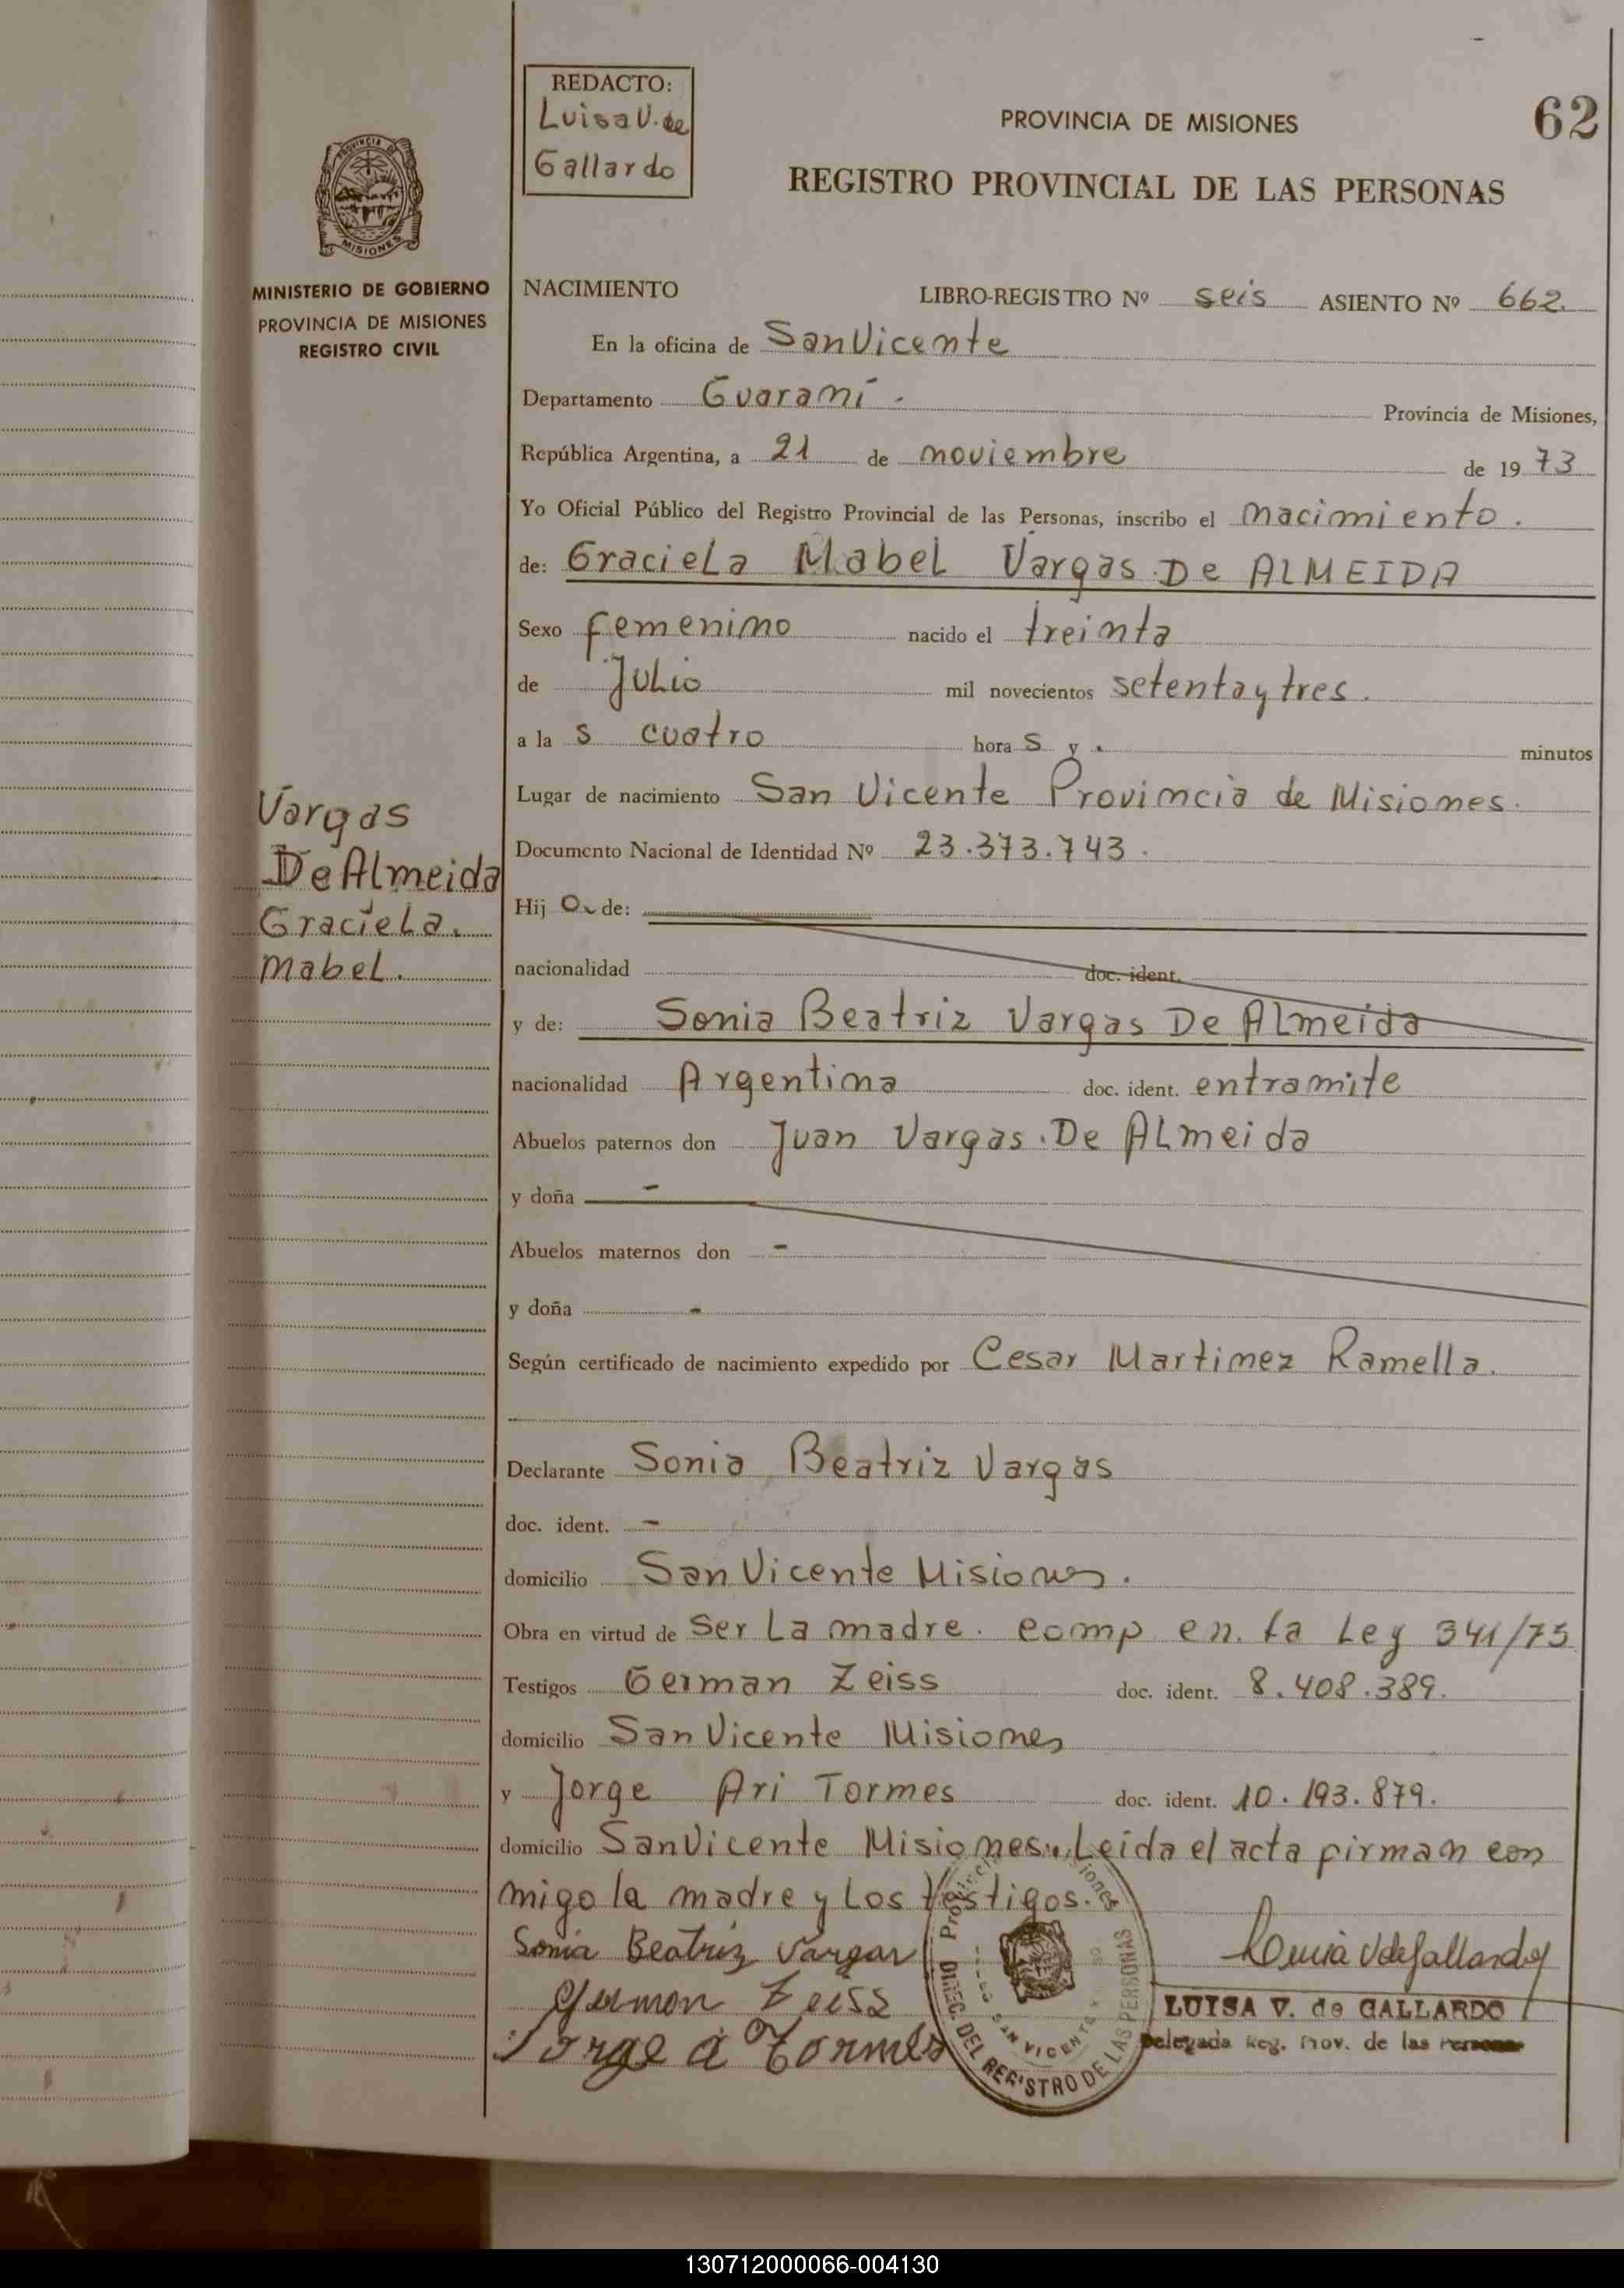 REDACTO:
Luisa V. de
Gallardo
PROVINCIA DE MISIONES
62
REGISTRO PROVINCIAL DE LAS PERSONAS
PROVINCIA DE
MISIONES
MINISTERIO DE GOBIERNO
PROVINCIA DE MISIONES
REGISTRO CIVIL
NACIMIENTO
LIBRO-REGISTRO Nº seis ASIENTO Nº 662.
En la oficina de San Vicente
Departamento Guaraní. Provincia de Misiones,
República Argentina, a 21 de noviembre de 1973
Yo Oficial Público del Registro Provincial de las Personas, inscribo el nacimiento.
de: Graciela Mabel Vargas De ALMEIDA
Sexo femenino nacido el treinta
de Julio mil novecientos setenta y tres.
a la s cuatro hora s y . minutos
Lugar de nacimiento San Vicente Provincia de Misiones.
Documento Nacional de Identidad Nº 23.373.743.
Vargas
De Almeida
Graciela.
Mabel.
Hij o de:
nacionalidad doc. ident.
y de: Sonia Beatriz Vargas De Almeida
nacionalidad Argentina doc. ident. en tramite
Abuelos paternos don Juan Vargas. De Almeida
y doña -
Abuelos maternos don -
y doña -
Según certificado de nacimiento expedido por Cesar Martinez Ramella.
Declarante Sonia Beatriz Vargas
doc. ident. -
domicilio San Vicente Misiones.
Obra en virtud de ser la madre. comp en. la Ley 341/73
Testigos German Zeiss doc. ident. 8.408.389.
domicilio San Vicente Misiones
y Jorge Ari Tormes doc. ident. 10.193.879.
domicilio San Vicente Misiones. Leida el acta firman con
migo la madre y los testigos.
Sonia Beatriz Vargas
German Zeiss
Jorge A Tormes
Luisa V de Gallardo
LUISA V. de GALLARDO
Delegada Reg. Prov. de las Personas
DIREC. DEL REGISTRO DE LAS PERSONAS
SAN VICENTE
130712000066-004130